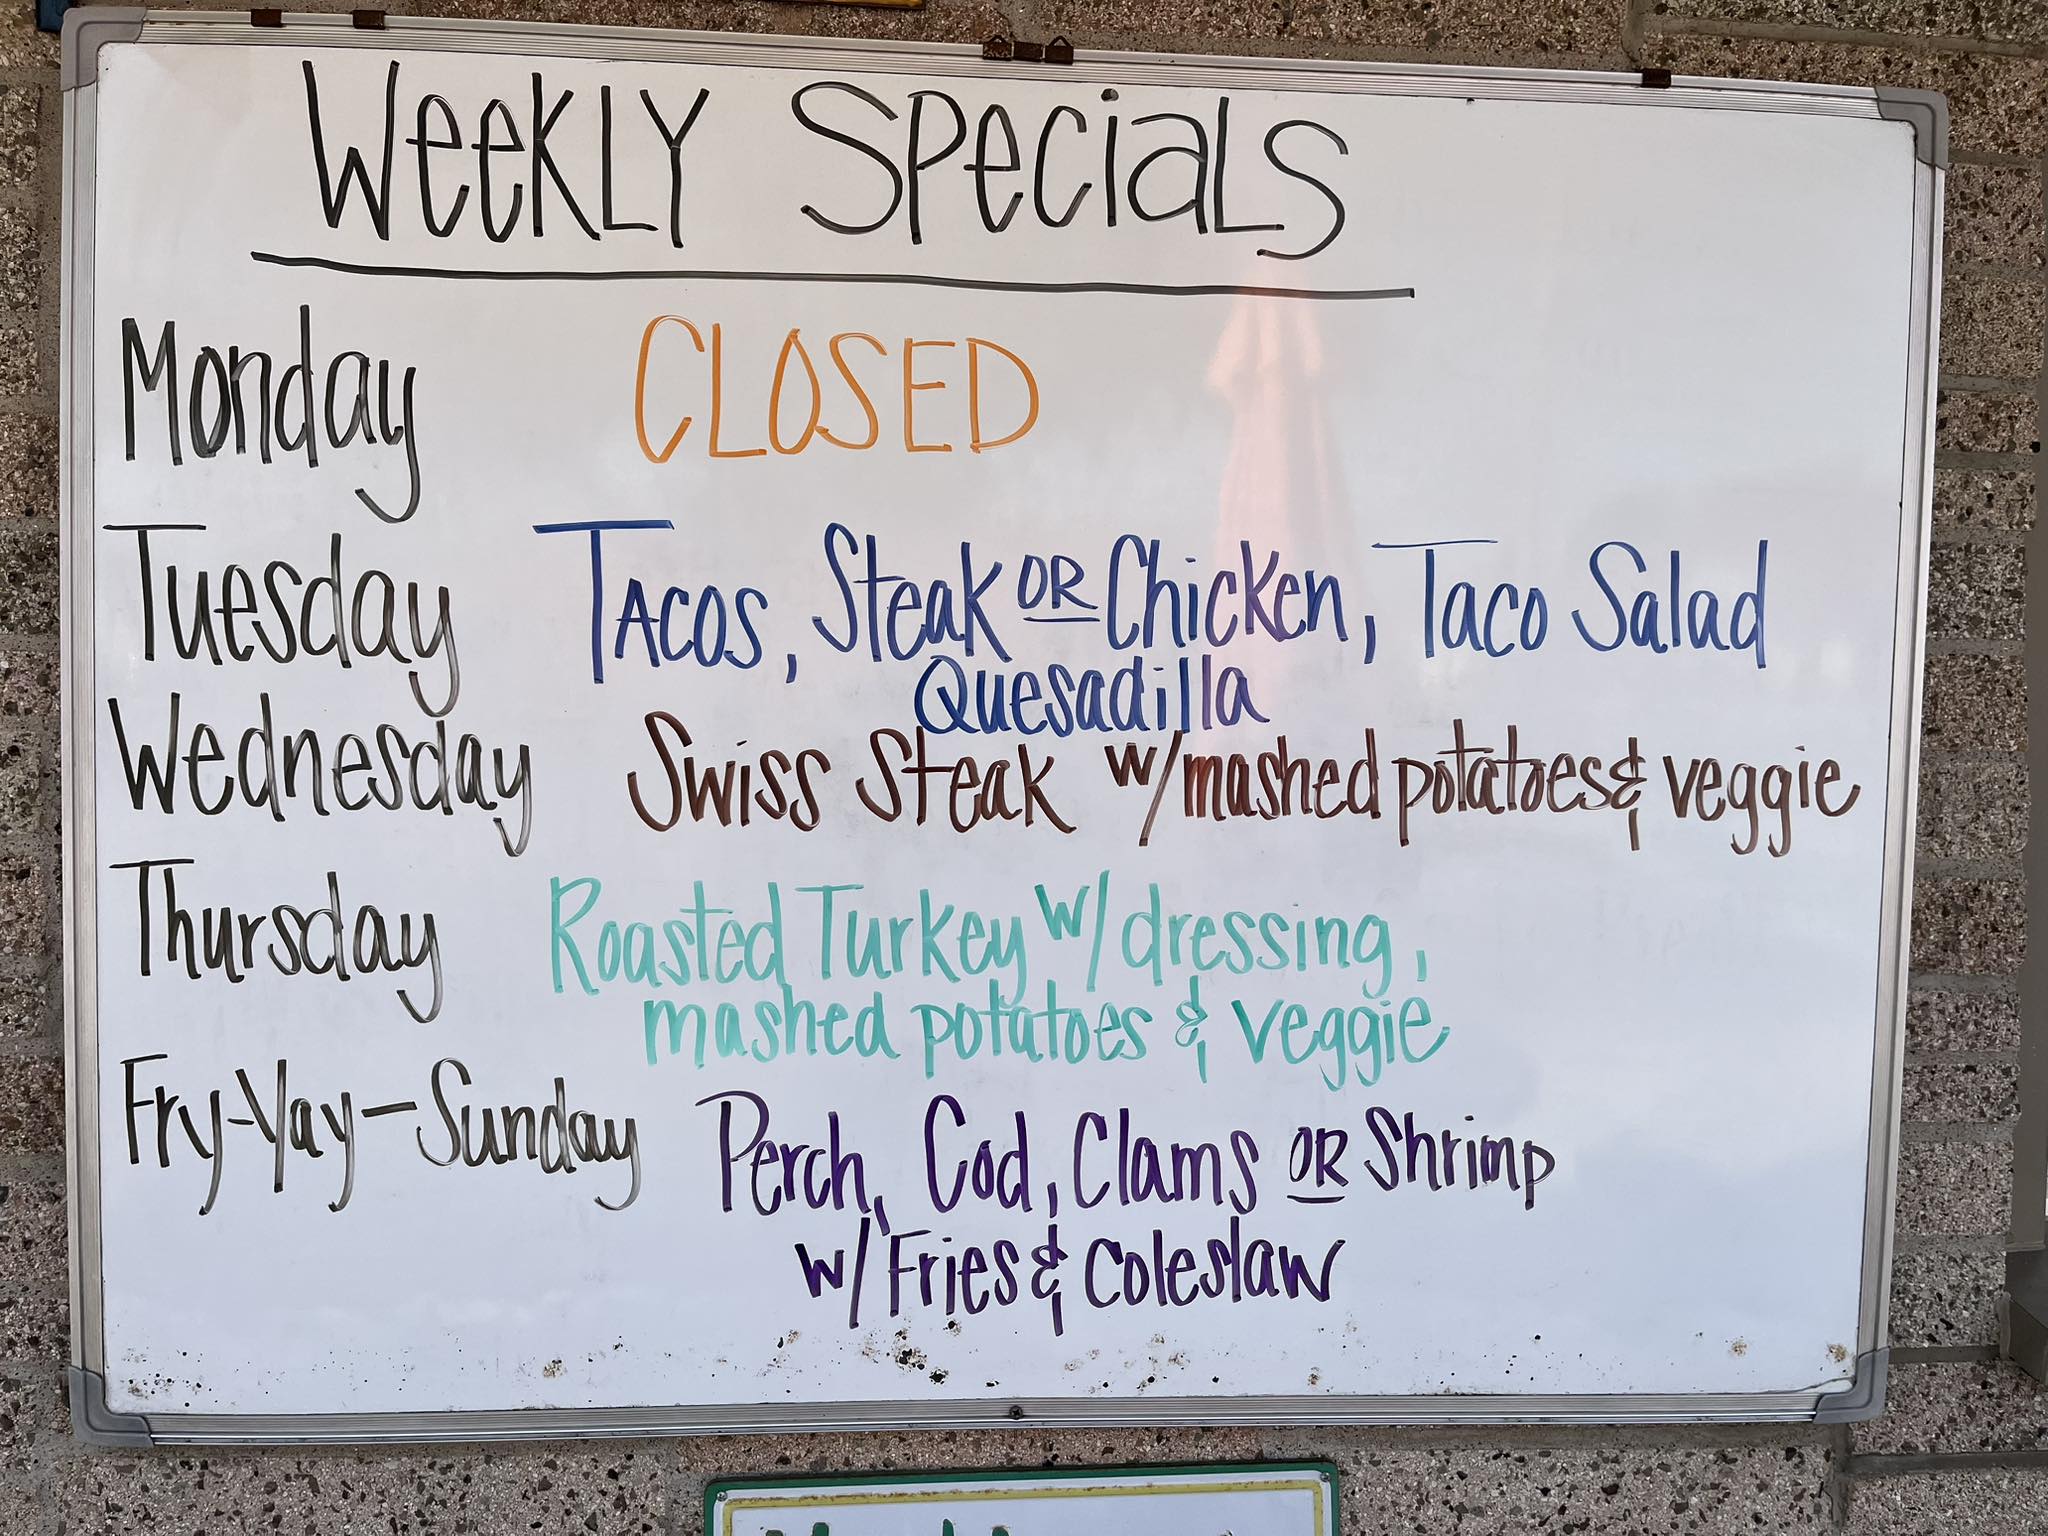 Weekly Specials
Monday CLOSED
Tuesday Tacos, Steak OR Chicken, Taco Salad
Quesadilla
Wednesday Swiss Steak w/mashed potatoes & veggie
Thursday Roasted Turkey w/dressing,
mashed potatoes & veggie
Fry-Yay-Sunday Perch, Cod, Clams OR Shrimp
w/Fries & Coleslaw